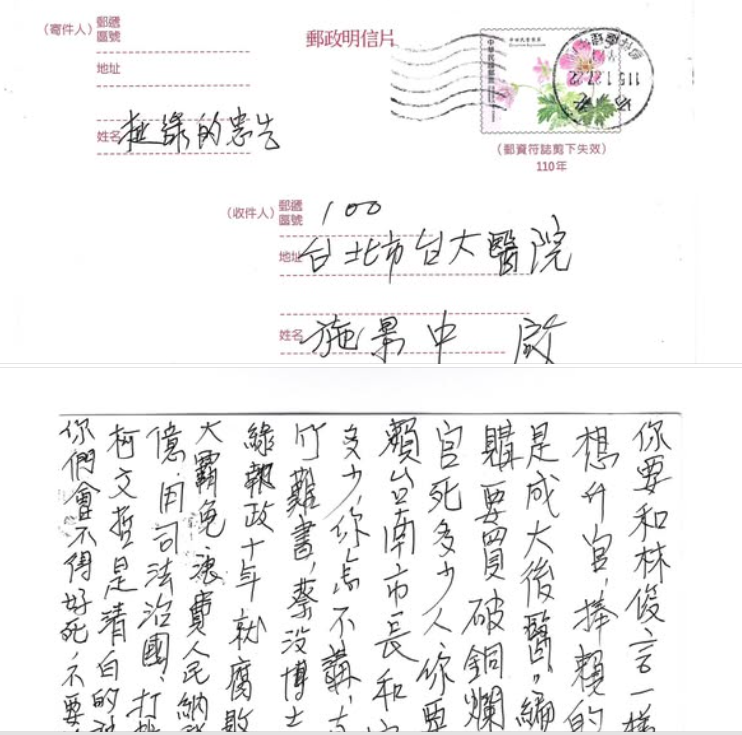 (寄件人)
郵遞
區號
地址
姓名 挺綠的忠告
郵政明信片
中華民國郵票
115.1.27.22
(郵資符誌剪下失效)
110年
(收件人)
郵遞
區號 100
地址 台北市台大醫院
姓名 施景中 啟
你要和林俊言一樣
想升官,捧賴的
是成大後醫,編
購要買破銅爛
官死多少人你要
賴台南市長和
多少,你為不講,
竹難書,蔡没博士
綠報政十年就腐敗
大霸免浪費人民納
億,用司法治國,打
柯文哲是清白的
你們會不得好死,不要